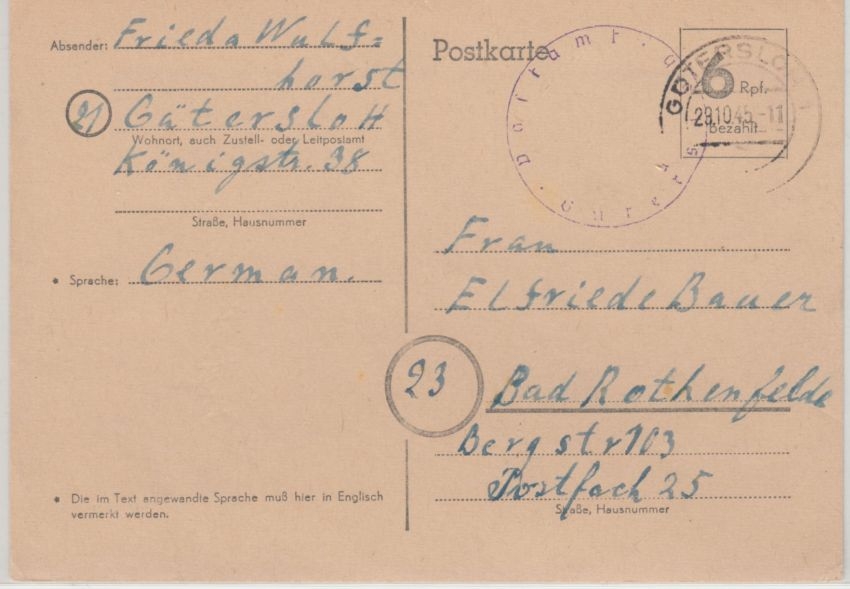 Absender: Frieda Wulf=
horst
21 Gütersloh
Wohnort, auch Zustell- oder Leitpostamt
Königstr. 38
Straße, Hausnummer
• Sprache: German.
• Die im Text angewandte Sprache muß hier in Englisch
vermerkt werden.
Postkarte
6 Rpf.
bezahlt
GÜTERSLOH 1
29.10.45.-11
Frau
Elfriede Bauer
23 Bad Rothenfelde
Bergstr 103
Postfach 25
Straße, Hausnummer